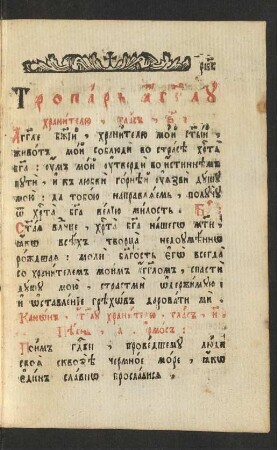 Тропа́рь а҆́гг҃лꙋ
храни́телю, гла́съ, ѕ҃:
А҆́гг҃ле бж҃їи, храни́телю мо́й ст҃ы́и,
живо́тъ мо́й соблюдѝ во стра́сѣ хрⷭ҇та̀
бг҃а: оу҆́мъ мо́й оу҆твердѝ во и҆́стиннѣмъ
пꙋтѝ, и҆ къ любвѝ го́рнѣй оу҆ѧзвѝ дꙋ́шꙋ
мою̀: да тобо́ю направлѧ́емь, полꙋчꙋ̀
ѿ хрⷭ҇та̀ бг҃а ве́лїю ми́лость. Бг҃:
Ст҃а́ѧ влⷣчце, хрⷭ҇та̀ бг҃а на́шегѡ мт҃и,
ꙗ҆́кѡ всѣ́хъ творца̀ недоꙋмѣ́ннѡ
ро́ждшаѧ: молѝ бл҃гость є҆гѡ̀ всегда̀
со храни́телемъ мои́мъ а҆́гг҃ломъ, спастѝ
дꙋ́шꙋ мою̀, страстьмѝ ѡ҆держи́мꙋю:
и҆ ѡ҆ставле́нїе грѣхѡ́въ дарова́ти мѝ
Кано́нъ, а҆́гг҃лꙋ храни́телю, гла́съ, и҃
Пѣ́снь, а҃. і҆рмо́съ:
Пои́мъ гдⷭ҇ви, прове́дшемꙋ лю́ди
своѧ̀ сквозѣ̀ чермно́е мо́ре, ꙗ҆́кѡ
є҆ди́нъ сла́внѡ просла́висѧ,